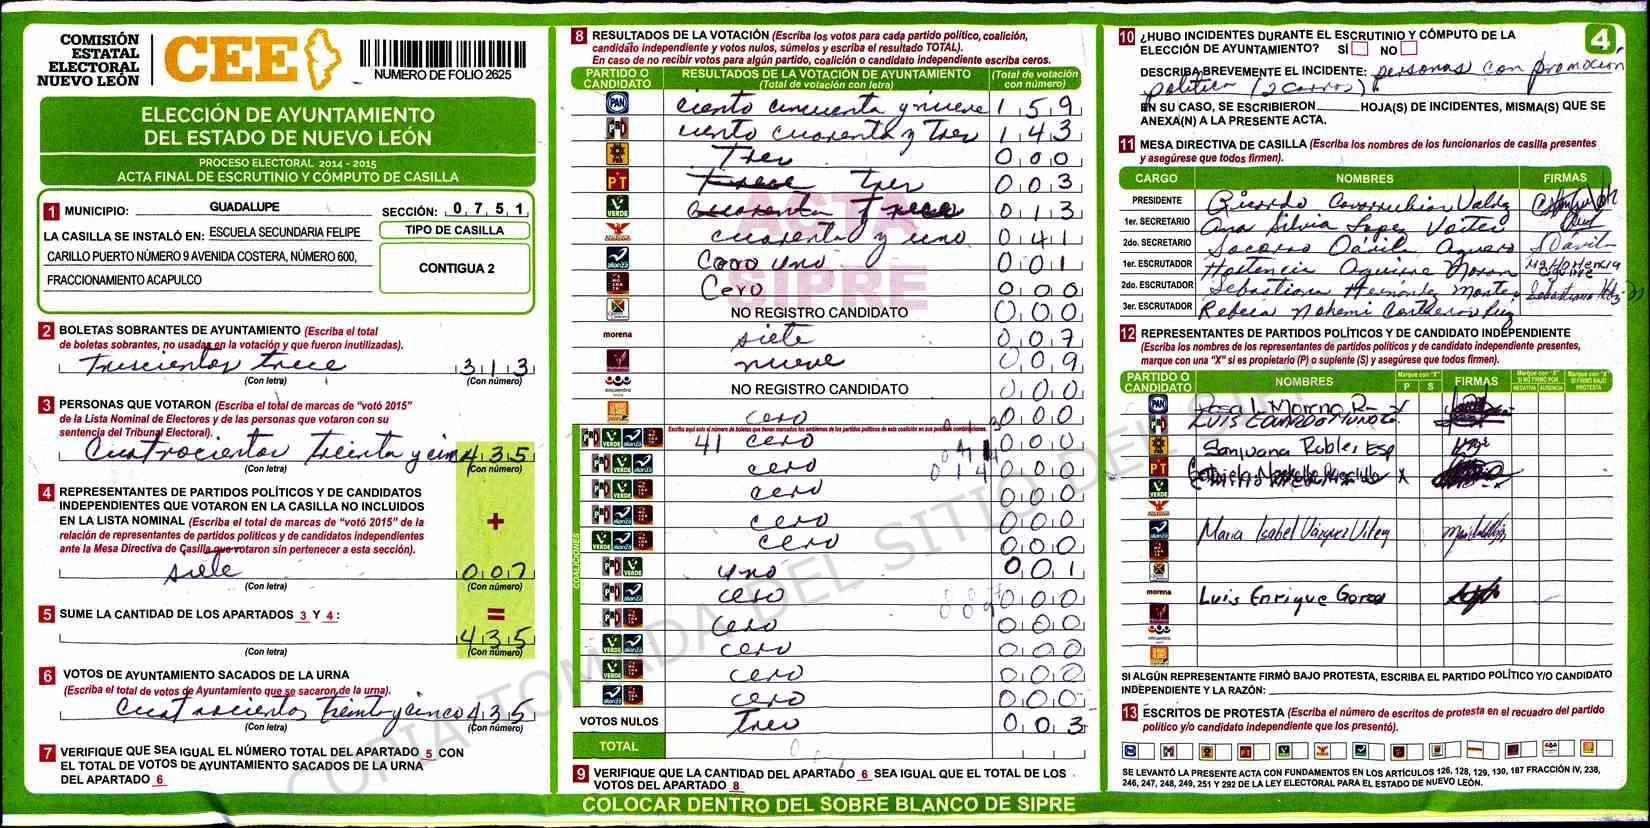 COMISIÓN
ESTATAL
ELECTORAL
NUEVO LEÓN
CEE
NUMERO DE FOLIO 2625
ELECCIÓN DE AYUNTAMIENTO
DEL ESTADO DE NUEVO LEÓN
PROCESO ELECTORAL 2014 - 2015
ACTA FINAL DE ESCRUTINIO Y CÓMPUTO DE CASILLA
1 MUNICIPIO: GUADALUPE SECCIÓN: 0 7 5 1
LA CASILLA SE INSTALÓ EN: ESCUELA SECUNDARIA FELIPE
CARILLO PUERTO NÚMERO 9 AVENIDA COSTERA, NÚMERO 600,
FRACCIONAMIENTO ACAPULCO
TIPO DE CASILLA
CONTIGUA 2
2 BOLETAS SOBRANTES DE AYUNTAMIENTO (Escriba el total
de boletas sobrantes, no usadas en la votación y que fueron inutilizadas).
Trescientos trece 3 1 3
(Con letra) (Con número)
3 PERSONAS QUE VOTARON (Escriba el total de marcas de "votó 2015"
de la Lista Nominal de Electores y de las personas que votaron con su
sentencia del Tribunal Electoral).
Cuatrocientos Treinta y cinco 4 3 5
(Con letra) (Con número)
4 REPRESENTANTES DE PARTIDOS POLÍTICOS Y DE CANDIDATOS
INDEPENDIENTES QUE VOTARON EN LA CASILLA NO INCLUIDOS
EN LA LISTA NOMINAL (Escriba el total de marcas de "votó 2015" de la
relación de representantes de partidos políticos y de candidatos independientes
ante la Mesa Directiva de Casilla que votaron sin pertenecer a esta sección).
+
siete 0 0 7
(Con letra) (Con número)
5 SUME LA CANTIDAD DE LOS APARTADOS 3 Y 4: =
4 3 5
(Con letra) (Con número)
6 VOTOS DE AYUNTAMIENTO SACADOS DE LA URNA
(Escriba el total de votos de Ayuntamiento que se sacaron de la urna).
Cuatrocientos Treinta y cinco 4 3 5
(Con letra) (Con número)
7 VERIFIQUE QUE SEA IGUAL EL NÚMERO TOTAL DEL APARTADO 5 CON
EL TOTAL DE VOTOS DE AYUNTAMIENTO SACADOS DE LA URNA
DEL APARTADO 6
8 RESULTADOS DE LA VOTACIÓN (Escriba los votos para cada partido político, coalición,
candidato independiente y votos nulos, súmelos y escriba el resultado TOTAL).
En caso de no recibir votos para algún partido, coalición o candidato independiente escriba ceros.
PARTIDO O CANDIDATO RESULTADOS DE LA VOTACIÓN DE AYUNTAMIENTO (Total de votación con letra) (Total de votación con número)
PAN ciento cincuenta y nueve 1 5 9
PRD ciento cuarenta y Tres 1 4 3
Tres 0 0 0
PT tres 0 0 3
VERDE 0 1 3
cuarenta y uno 0 4 1
alianza Cero uno 0 0 1
Cero 0 0 0
NO REGISTRO CANDIDATO 0 0 0
morena siete 0 0 7
nueve 0 0 9
encuentro NO REGISTRO CANDIDATO 0 0 0
cero 0 0 0
COALICIONES
Escriba aquí solo el número de boletas que tienen marcados los emblemas de los partidos políticos de esta coalición en sus posibles combinaciones.
41 cero 0 0 0
cero 0 0 0
cero 0 0 0
cero 0 0 0
cero 0 0 0
uno 0 0 1
cero 0 0 0
cero 0 0 0
cero 0 0 0
cero 0 0 0
cero 0 0 0
VOTOS NULOS Tres 0 0 3
TOTAL
9 VERIFIQUE QUE LA CANTIDAD DEL APARTADO 6 SEA IGUAL QUE EL TOTAL DE LOS
VOTOS DEL APARTADO 8
COLOCAR DENTRO DEL SOBRE BLANCO DE SIPRE
ACTA
SIPRE
COPIA TOMADA DEL SITIO DEL SIPRE
4
10 ¿HUBO INCIDENTES DURANTE EL ESCRUTINIO Y CÓMPUTO DE LA
ELECCIÓN DE AYUNTAMIENTO? SÍ NO
DESCRIBA BREVEMENTE EL INCIDENTE: personas con promoción
politica (2 carros)
EN SU CASO, SE ESCRIBIERON HOJA(S) DE INCIDENTES, MISMA(S) QUE SE
ANEXA(N) A LA PRESENTE ACTA.
11 MESA DIRECTIVA DE CASILLA (Escriba los nombres de los funcionarios de casilla presentes
y asegúrese que todos firmen).
CARGO NOMBRES FIRMAS
PRESIDENTE Ricardo Covarrubias Valdez
1er. SECRETARIO Ana Silvia Lopez
2do. SECRETARIO Socorro Dávila Aguero S Davila
1er. ESCRUTADOR Hortencia Aguirre Moran Ma Hortencia Aguirre
2do. ESCRUTADOR Sebastiana Hernández Montes Sebastiana
3er. ESCRUTADOR Rebeca Nohemi
12 REPRESENTANTES DE PARTIDOS POLÍTICOS Y DE CANDIDATO INDEPENDIENTE
(Escriba los nombres de los representantes de partidos políticos y de candidato independiente presentes,
marque con una "X" si es propietario (P) o suplente (S) y asegúrese que todos firmen).
PARTIDO O CANDIDATO NOMBRES Marque con "X" P S FIRMAS Marque con "X" SI NO FIRMÓ POR NEGATIVA AUSENCIA Marque con "X" SI FIRMÓ BAJO PROTESTA
PAN Rosa L Moreno R
LUIS
Sanjuana Robles Esp
PT X
VERDE
Maria Isabel Vazquez
morena Luis Enrique Garza
SI ALGÚN REPRESENTANTE FIRMÓ BAJO PROTESTA, ESCRIBA EL PARTIDO POLÍTICO Y/O CANDIDATO
INDEPENDIENTE Y LA RAZÓN:
13 ESCRITOS DE PROTESTA (Escriba el número de escritos de protesta en el recuadro del partido
político y/o candidato independiente que los presentó).
SE LEVANTÓ LA PRESENTE ACTA CON FUNDAMENTOS EN LOS ARTÍCULOS 126, 128, 129, 130, 187 FRACCIÓN IV, 238,
246, 247, 248, 249, 251 Y 292 DE LA LEY ELECTORAL PARA EL ESTADO DE NUEVO LEÓN.